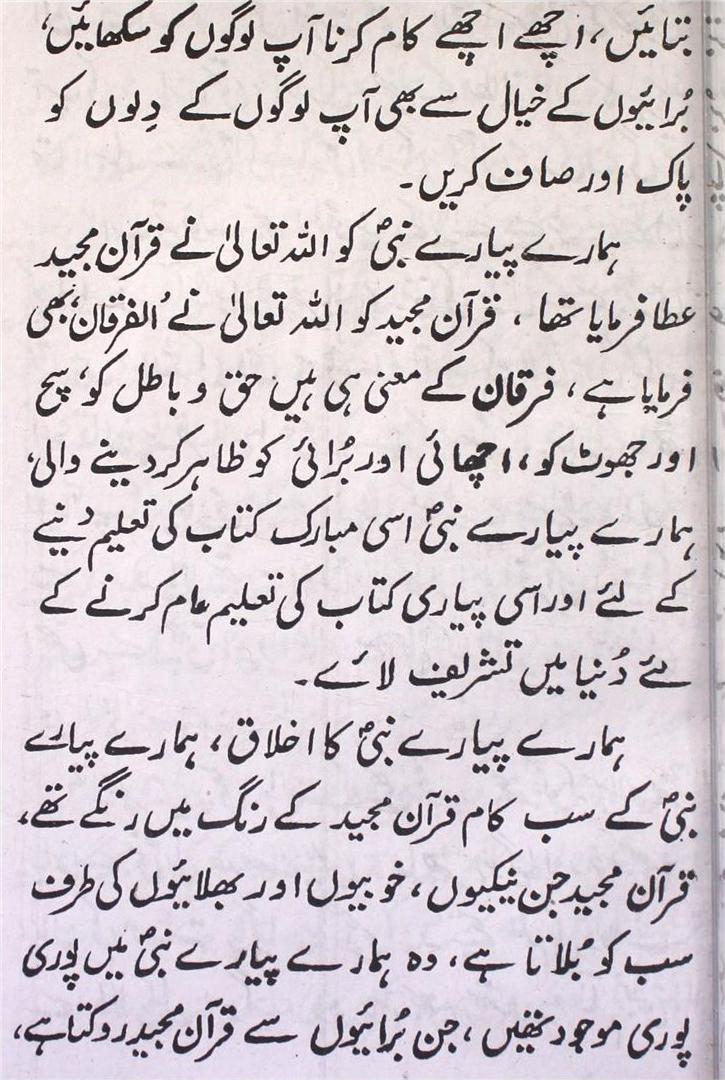 بتائیں، اچھے اچھے کام کرنا آپ لوگوں کو سکھائیں،
بُرائیوں کے خیال سے بھی آپ لوگوں کے دِلوں کو
پاک اور صاف کریں۔
ہمارے پیارے نبیؐ کو اللہ تعالیٰ نے قرآن مجید
عطا فرمایا تھا، قرآن مجید کو اللہ تعالیٰ نے ’الفرقان‘ بھی
فرمایا ہے، فرقان کے معنی ہی ہیں حق و باطل کو، سچ
اور جھوٹ کو، اچھائی اور بُرائی کو ظاہر کر دینے والی،
ہمارے پیارے نبیؐ اسی مبارک کتاب کی تعلیم دینے
کے لئے اور اسی پیاری کتاب کی تعلیم عام کرنے کے
لئے دُنیا میں تشریف لائے۔
ہمارے پیارے نبیؐ کا اخلاق، ہمارے پیارے
نبیؐ کے سب کام قرآن مجید کے رنگ میں رنگے تھے،
قرآن مجید جن نیکیوں، خوبیوں اور بھلائیوں کی طرف
سب کو بُلاتا ہے، وہ ہمارے پیارے نبیؐ میں پوری
پوری موجود تھیں، جن بُرائیوں سے قرآن مجید روکتا ہے،